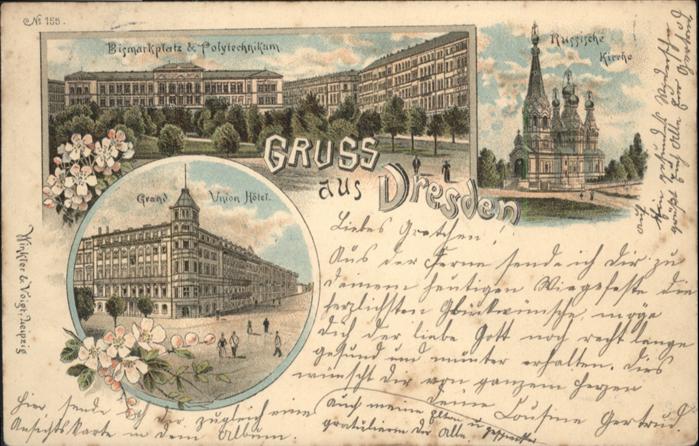 No 155.
Bismarkplatz & Polytechnikum
Russische
Kirche
GRUSS
aus Dresden
Grand Union Hôtel.
Winkler & Voigt, Leipzig
Liebes Gretchen!
Aus der Ferne sende ich Dir zu
deinem heutigen Wiegefeste die
herzlichsten Glückwünsche, möge
Dich der liebe Gott noch recht lange
gesund und munter erhalten. Dies
wünscht dir von ganzem Herzen
Deine Cousine Gertrud.
Hier sende ich dir zugleich eine
Ansichtskarte in dem Album
auch meine Eltern u.
gratulieren dir Alle
auf